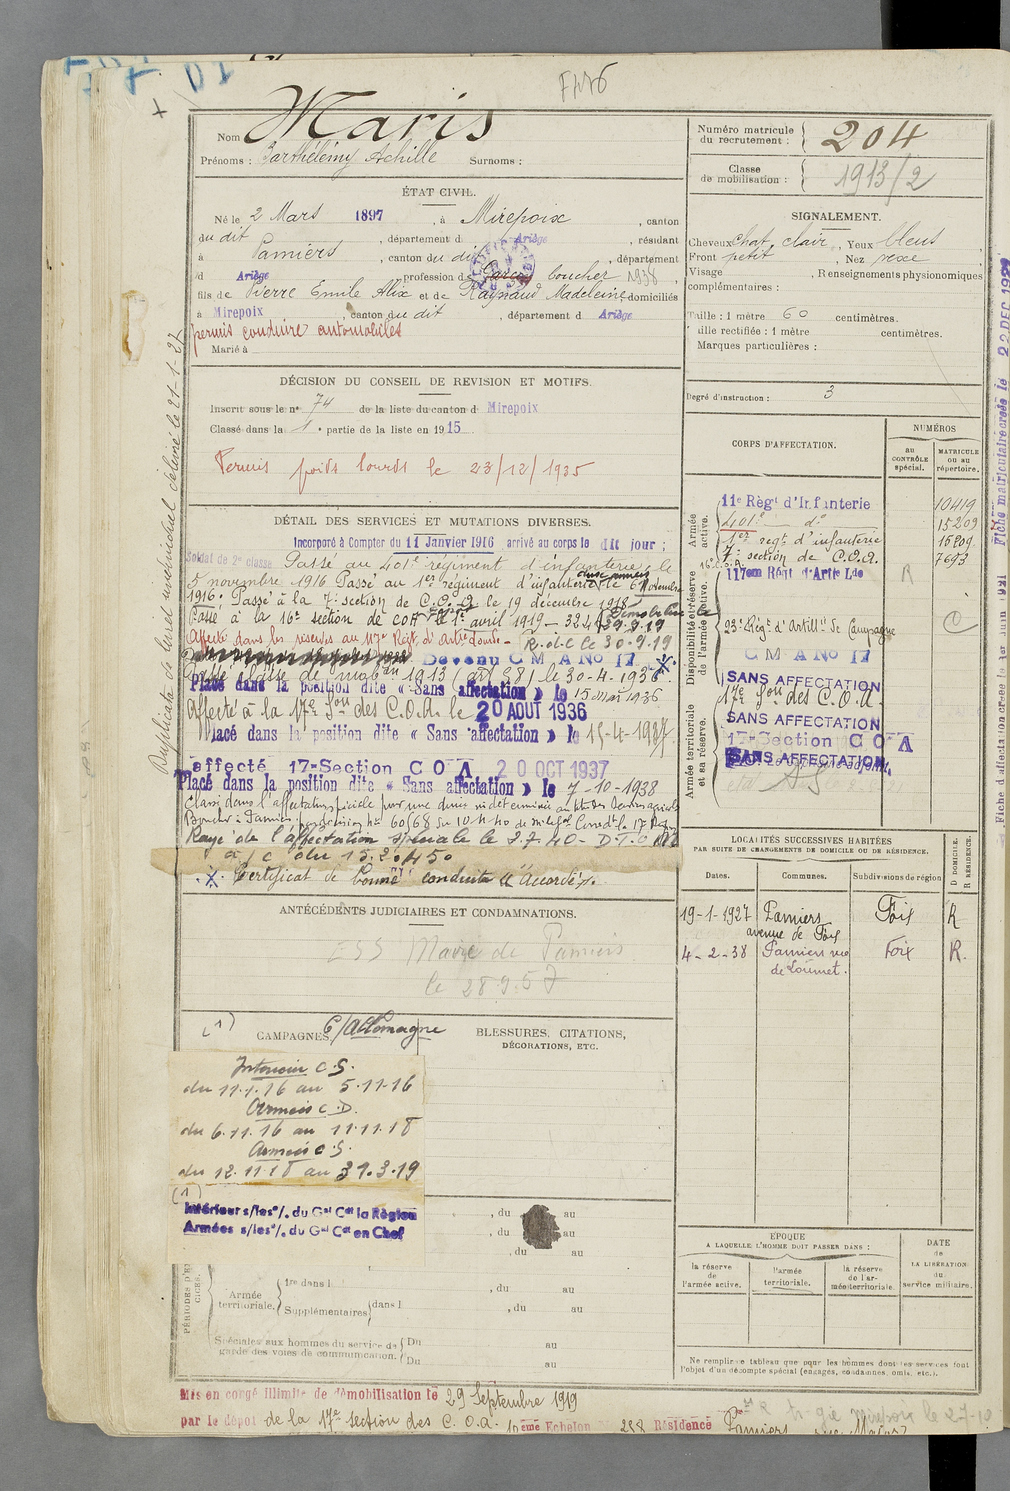 Nom Maris
Prénoms : Barthélemy Achille Surnoms :
Numéro matricule du recrutement : 204
Classe de mobilisation : 1913/2
ÉTAT CIVIL.
Né le 2 Mars 1897, à Mirepoix, canton
du dit, département d Ariège, résidant
à Pamiers, canton du dit, département
d Ariège, profession de Garçon boucher 1938
fils de Pierre Emile Alix et de Raynaud Madeleine domiciliés
à Mirepoix canton du dit, département d Ariège
permis conduire automobiles
Marié à
SIGNALEMENT.
Cheveux chat. clair, Yeux bleus
Front petit, Nez rexe
Visage, Renseignements physionomiques
complémentaires :
Taille : 1 mètre 60 centimètres.
Taille rectifiée : 1 mètre centimètres.
Marques particulières :
Degré d'instruction : 3
DÉCISION DU CONSEIL DE REVISION ET MOTIFS.
Inscrit sous le n° 74 de la liste du canton d Mirepoix
Classé dans la 1e partie de la liste en 1915
Permis poids lourds le 23/12/1935
DÉTAIL DES SERVICES ET MUTATIONS DIVERSES.
Incorporé à Compter du 11 Janvier 1916 arrivé au corps le dit jour ;
Soldat de 2e classe Passé au 401e régiment d'infanterie le
5 novembre 1916 Passé au 1er régiment d'infanterie le 6 Novembre
1916. Passé à la 7e section de C.O.A. le 19 décembre 1918
Passé à la 16e section de COA le 1er avril 1919 - Démobilisé le
29.9.19
Affecté dans les réserves au 117e Régt d'Artie lourde - R.d.l.c le 30-9-19
Devenu C M A No 17
classe de mob on 1913 (art 58) le 30-4-1936
Placé dans la position dite « Sans affectation » le 15 mai 1936
Affecté à la 17e Son des C.O.A. le 20 AOUT 1936
Placé dans la position dite « Sans affectation » le 15-4-1937
affecté 17e Section C O A 20 OCT 1937
Placé dans la position dite « Sans affectation » le 7-10-1938
Classé dans l'affectation spéciale pour une durée indéterminée
Boucher à Pamiers
Rayé de l'affectation spéciale le 2.7.40 -
à/c du 15.2.450
Certificat de bonne conduite "Accordé".
CORPS D'AFFECTATION.
NUMÉROS
au contrôle spécial.
MATRICULE ou au répertoire.
Armée active.
11e Régt d'Infanterie 10419
401e do 15209
1er régt d'infanterie 15209
7e section de C.O.A. 7693
16e C.O.A
Disponibilité et réserve de l'armée active.
117em Régt d'Artie Lde R
23e Régt d'Artillie de Campagne
C M A No 17
SANS AFFECTATION
17e Son des C.O.A.
Armée territoriale et sa réserve.
SANS AFFECTATION
17e Section C O A
SANS AFFECTATION
LOCALITÉS SUCCESSIVES HABITÉES
PAR SUITE DE CHANGEMENTS DE DOMICILE OU DE RÉSIDENCE.
Dates. Communes. Subdivisions de région D DOMICILE. R RÉSIDENCE.
19-1-1927 Pamiers avenue de Foix Foix R
4-2-38 Pamiers rue de Loumet. Foix R.
ANTÉCÉDENTS JUDICIAIRES ET CONDAMNATIONS.
ESS Mairie de Pamiers
le 28 9.57
(1)
CAMPAGNES C/Allemagne
Intérieur C.S.
du 11.1.16 au 5.11.16
Armées C.D.
du 6.11.16 au 11.11.18
Armées C.S.
du 12.11.18 au 31.3.19
(1)
Intérieur s/les o/. du Gal Ct la Région
Armées s/les o/. du Gal Ct en Chef
BLESSURES, CITATIONS,
DÉCORATIONS, ETC.
, du au
, du au
, du au
Armée territoriale. 1re dans l , du au
Supplémentaires dans l , du au
Spéciales aux hommes du service de garde des voies de communication. Du au
Du au
ÉPOQUE
A LAQUELLE L'HOMME DOIT PASSER DANS :
la réserve de l'armée active.
l'armée territoriale.
la réserve de l'armée territoriale.
DATE
de
LA LIBÉRATION
du
service militaire.
Ne remplir ce tableau que pour les hommes dont les services font
l'objet d'un décompte spécial (engagés, condamnés, omis, etc.).
Mis en congé illimité de démobilisation le 29 Septembre 1919
par le dépôt de la 17e section des C.O.A. ème Echelon No 288 Résidence Pamiers
Duplicata de livret individuel délivré le 21-1-27
Fiche matriculaire créée le 22 DEC 1932
Fiche d'affectation créée le 1er Juin 1931